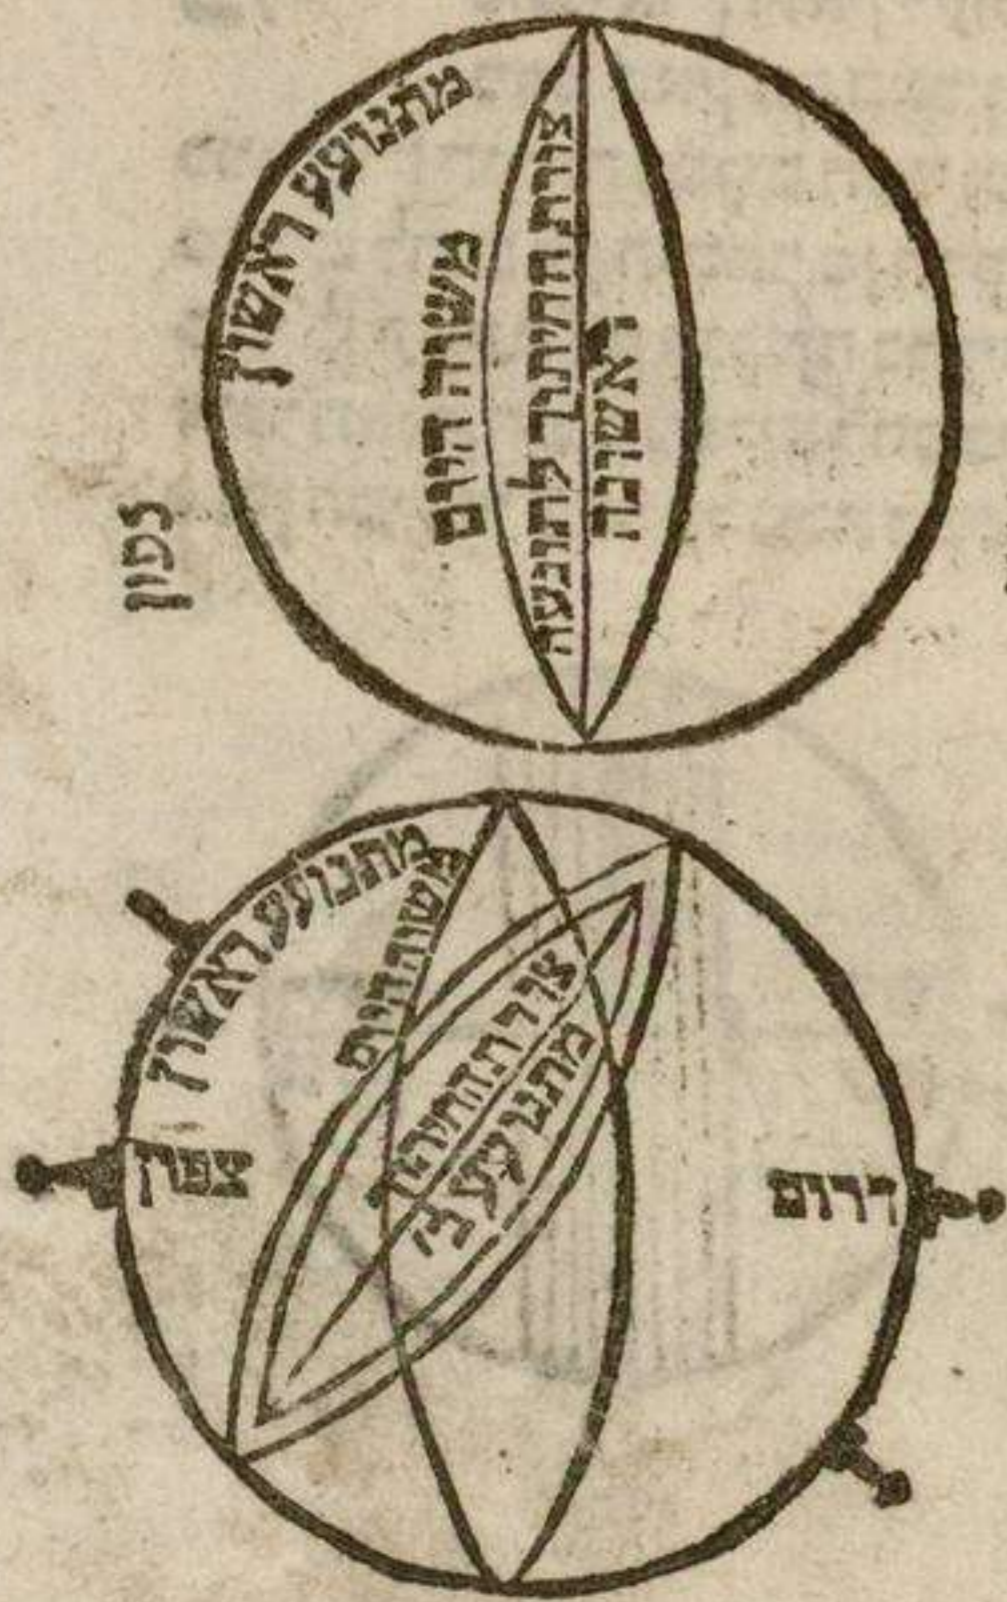 מתנופע ראשון
משוה היום
צורת החיתוך לתונעה
ראשונה
צפון
מתנועע ראשון
משוה היום
צורת החיתוך
מתנועע ב'
צפון
דרום